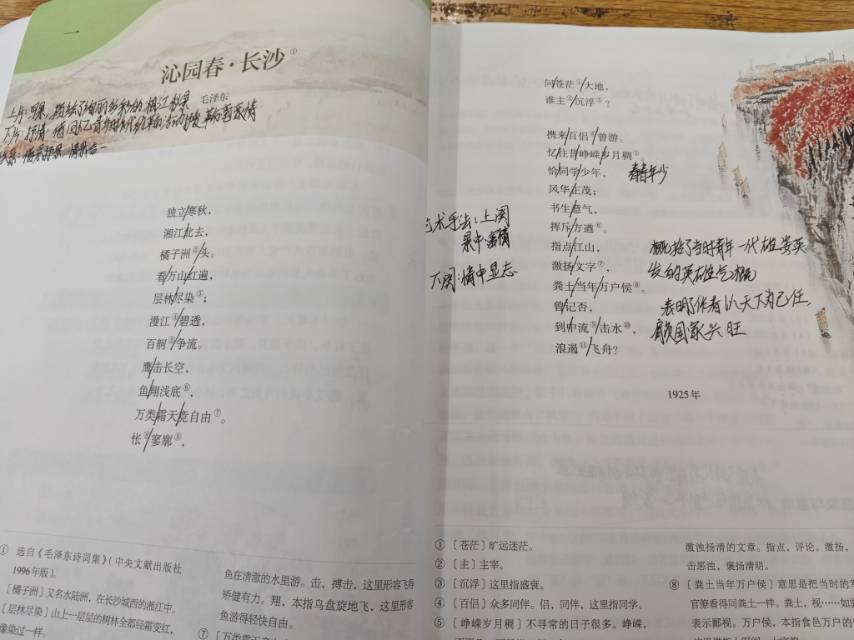 一
沁园春·长沙①
毛泽东
独立寒秋，
湘江北去，
橘子洲②头。
看万山红遍，
层林尽染③；
漫江④碧透，
百舸⑤争流。
鹰击长空，
鱼翔浅底⑥，
万类霜天竞自由⑦。
怅⑧寥廓⑨，
① 选自《毛泽东诗词集》（中央文献出版社
1996年版）。
〔橘子洲〕又名水陆洲，在长沙城西的湘江中。
〔层林尽染〕山上一层层的树林全都经霜变红，
像染过一样。
鱼在清澈的水里游。击，搏击，这里形容飞得
矫健有力。翔，本指鸟盘旋地飞，这里形容
鱼游得轻快自由。
⑦〔万类霜天
问苍茫①大地，
谁主②沉浮③？
携来百侣④曾游。
忆往昔峥嵘岁月稠⑤
恰同学少年，
青年少
风华正茂；
书生意气，
挥斥方遒⑥。
指点江山，
激扬文字⑦，
粪土当年万户侯⑧。
曾记否，
到中流⑨击水⑩，
浪遏⑪飞舟？
艺术手法：上阕
景中寓情
下阕：情中显志
概括了当时青年一代雄姿英
发的英雄气概
表明作者以天下为己任，
国家兴旺
1925年
①〔苍茫〕旷远迷茫。
②〔主〕主宰。
③〔沉浮〕这里指盛衰。
④〔百侣〕众多同伴。侣，同伴，这里指同学。
⑤〔峥嵘岁月稠〕不寻常的日子很多。峥嵘，
激浊扬清的文章。指点，评论。激扬，
击恶浊，褒扬清明。
⑧〔粪土当年万户侯〕意思是把当时的军
官僚看得同粪土一样。粪土，视……如粪
表示鄙视。万户侯，本指食邑万户的